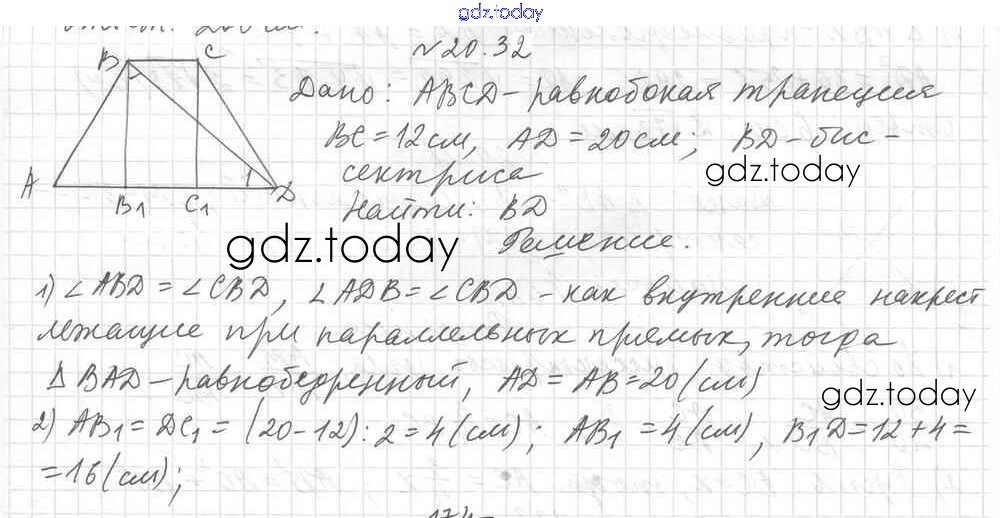 gdz.today
№20.32
B C
Дано: ABCD – равнобокая трапеция
BC = 12 см, AD = 20 см; BD – бис-
gdz.today
сектриса
A B₁ C₁ D
1
Найти: BD
gdz.today
Решение.
1) ∠ABD = ∠CBD, ∠ADB = ∠CBD – как внутренние накрест
лежащие при параллельных прямых, тогда
Δ BAD – равнобедренный, AD = AB = 20 (см)
gdz.today
2) AB₁ = DC₁ = (20 – 12) : 2 = 4 (см); AB₁ = 4 (см), B₁D = 12 + 4 =
= 16 (см);